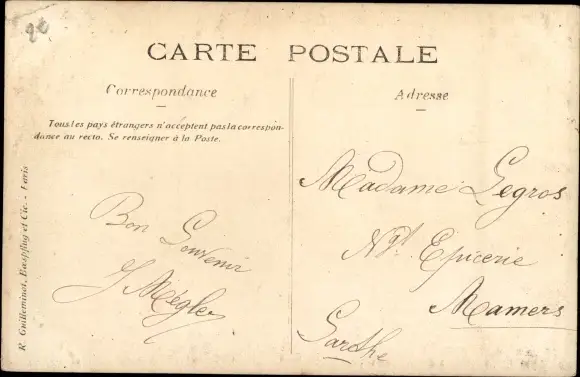 CARTE POSTALE
Correspondance
Tous les pays étrangers n'acceptent pas la correspon-
dance au recto. Se renseigner à la Poste.
Bon Souvenir
Adresse
Madame Legros
Ngt Epicerie
Mamers
Sarthe
R. Guilleminot, Bœspflug et Cie. - Paris